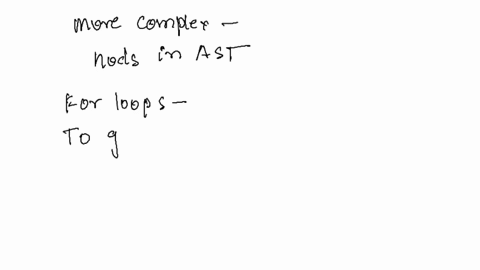 more complex –
nods in AST
For loops –
To g